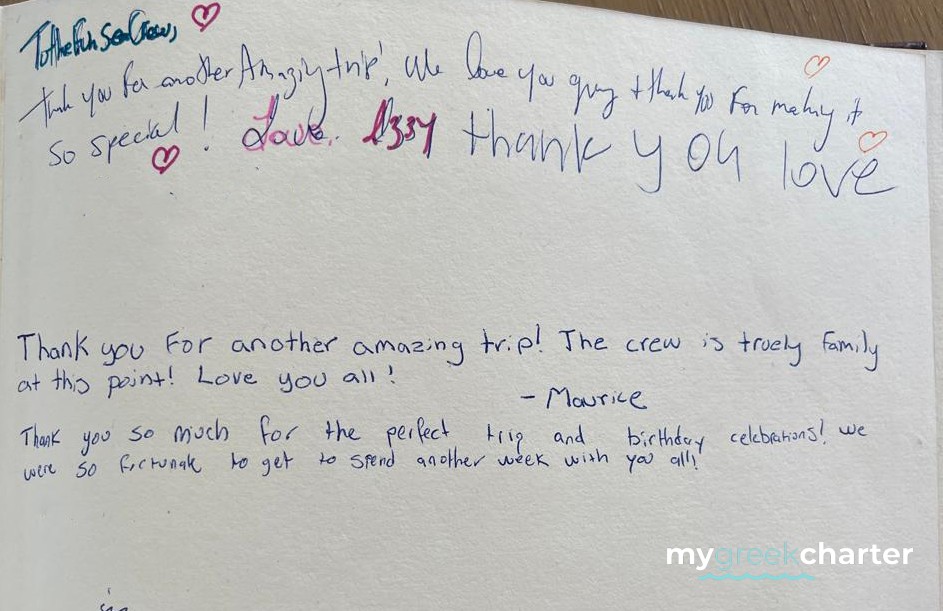 To the Fun Sea Crew,
thank you for another Amazing trip! We love you guys + thank you for making it
so special! Love. Izzy thank you love
Thank you For another amazing trip! The crew is truely family
at this point! Love you all!
- Maurice
Thank you so much for the perfect trip and birthday celebrations! we
were so fortunate to get to spend another week with you all!
mygreekcharter